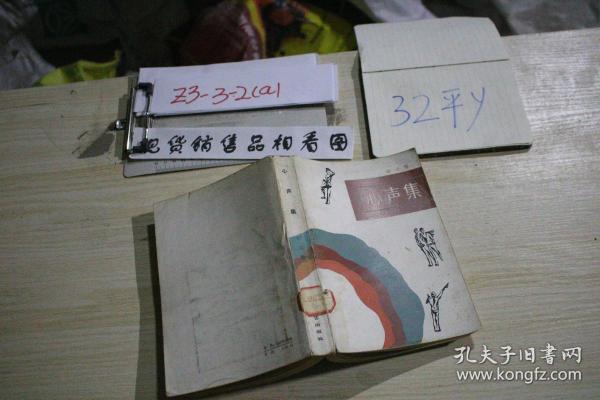 Z3-3-2(a)
现货销售品相看图
32平y
心声集
心声集
孔夫子旧书网
www.kongfz.com